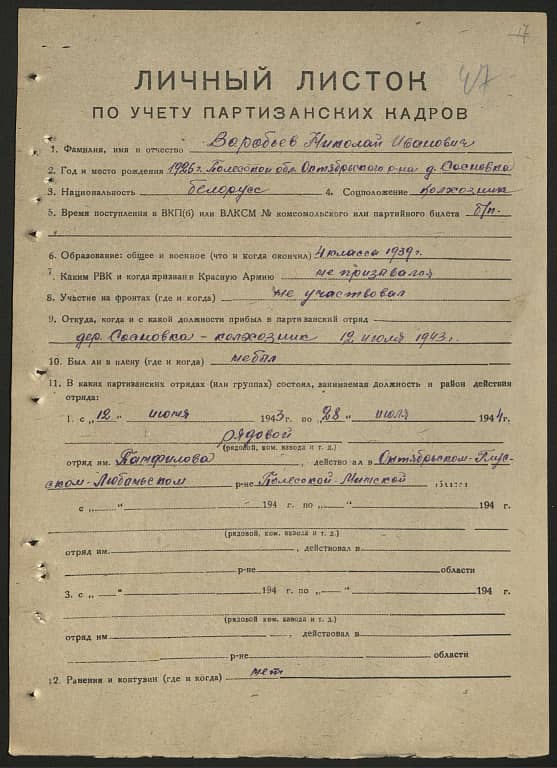 17
47
ЛИЧНЫЙ ЛИСТОК
ПО УЧЕТУ ПАРТИЗАНСКИХ КАДРОВ
1. Фамилия, имя и отчество Воробьев Николай Иванович
2. Год и место рождения 1926 г. Полесской обл. Октябрьского р-на д. Сосновка
3. Национальность белорусс 4. Соцположение колхозник
5. Время поступления в ВКП(б) или ВЛКСМ № комсомольского или партийного билета б/п.
6. Образование: общее и военное (что и когда окончил) 4 класса 1939 г.
7. Каким РВК и когда призван в Красную Армию не призывался
8. Участие на фронтах (где и когда) не участвовал
9. Откуда, когда и с какой должности прибыл в партизанский отряд
дер. Сосновка – колхозник 12 июля 1943 г.
10. Был ли в плену (где и когда) не был
11. В каких партизанских отрядах (или группах) состоял, занимаемая должность и район действия
отряда:
1. с „12 “ июня 1943 г. по „28 “ июля 1944 г.
рядовой
(рядовой, ком. взвода и т. д.)
отряд им. Панфилова, действо ал в Октябрьском-Глус-
ском-Любаньском р-не Полесской-Минской
с „— “ 194 г. по „— “ 194 г.
(рядовой, ком. взвода и т. д.)
отряд им. , действовал в
р-не области
3. с „— “ 194 г. по „— “ 194 г.
(рядовой, ком. взвода и т. д.)
отряд им , действовал в
р-не области
12. Ранения и контузии (где и когда) нет